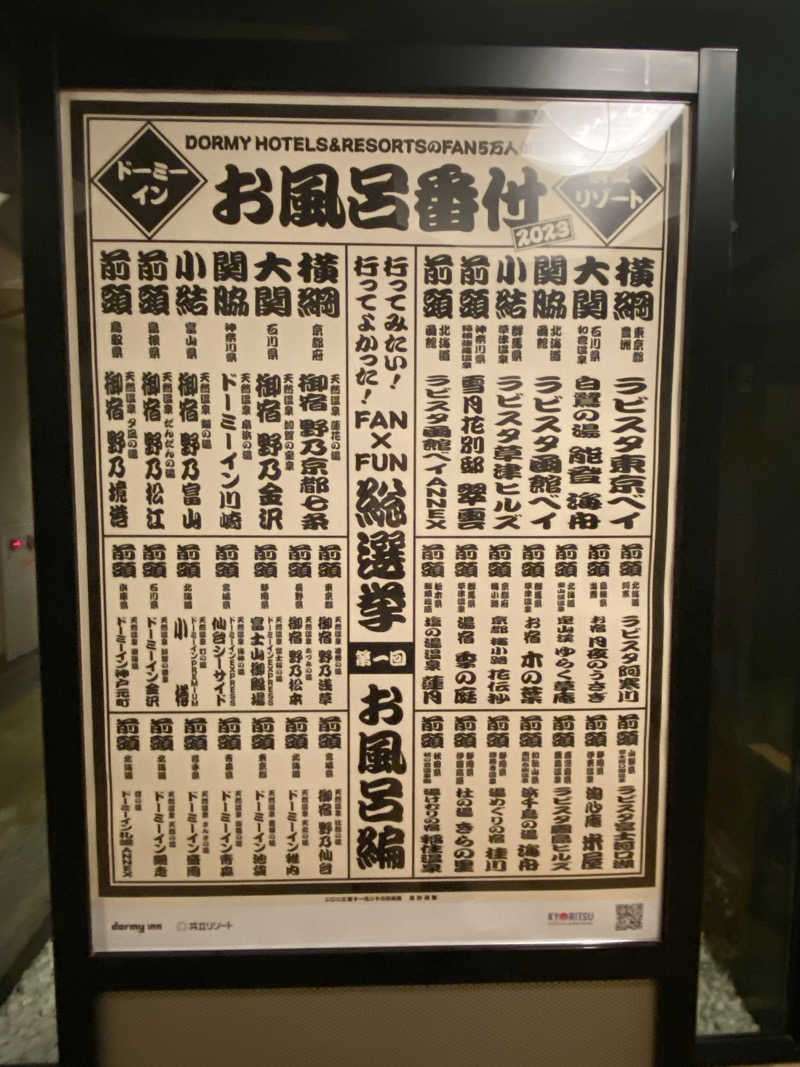 DORMY HOTELS&RESORTSのFAN5万人
お風呂番付
2023
ドーミー
イン
リゾート
横綱 東京都 豊洲 ラビスタ東京ベイ
大関 石川県 和倉温泉 白鷺の湯 能登 海舟
関脇 北海道 函館 ラビスタ函館ベイ
小結 群馬県 草津温泉 ラビスタ草津ヒルズ
前頭 神奈川県 雪月花別邸 翠雲
前頭 北海道 函館 ラビスタ函館ベイANNEX
前頭 北海道 ラビスタ阿寒川
前頭 島根県 お宿 月夜のうさぎ
前頭 北海道 定山渓 ゆらく草庵
前頭 群馬県 草津温泉 お宿 木の葉
前頭 京都府 梅小路 京都 梅小路 花伝抄
前頭 群馬県 草津温泉 湯宿 季の庭
前頭 栃木県 塩の湯温泉 蓮月
前頭 山梨県 ラビスタ富士河口湖
前頭 静岡県 淘心庵 米屋
前頭 鹿児島県 ラビスタ霧島ヒルズ
前頭 和歌山県 浜千鳥の湯 海舟
前頭 静岡県 湯めぐりの宿 桂川
前頭 静岡県 杜の湯 きらの里
前頭 秋田県 湯けむりの宿 稲住温泉
行ってみたい!
行ってよかった!
FAN×FUN
総選挙
第一回
お風呂編
横綱 京都府 天然温泉 蓮花の湯 御宿 野乃京都七条
大関 石川県 天然温泉 加賀の宝泉 御宿 野乃金沢
関脇 神奈川県 天然温泉 ドーミーイン川崎
小結 富山県 天然温泉 御宿 野乃富山
前頭 島根県 天然温泉 だんだんの湯 御宿 野乃松江
前頭 鳥取県 天然温泉 夕凪の湯 御宿 野乃境港
前頭 東京都 天然温泉 御宿 野乃浅草
前頭 長野県 天然温泉 あづみの湯 御宿 野乃松本
前頭 静岡県 天然温泉 ドーミーインEXPRESS 富士山御殿場
前頭 宮城県 天然温泉 ドーミーインEXPRESS 仙台シーサイド
前頭 北海道 天然温泉 灯の湯 ドーミーインPREMIUM 小樽
前頭 石川県 天然温泉 ドーミーイン金沢
前頭 兵庫県 天然温泉 ドーミーイン神戸元町
前頭 宮城県 天然温泉 御宿 野乃仙台
前頭 北海道 天然温泉 ドーミーイン稚内
前頭 東京都 天然温泉 ドーミーイン池袋
前頭 青森県 天然温泉 ドーミーイン青森
前頭 岩手県 天然温泉 ドーミーイン盛岡
前頭 北海道 天然温泉 ドーミーイン網走
前頭 北海道 ドーミーイン札幌ANNEX
dormy inn
共立リゾート
KYORITSU